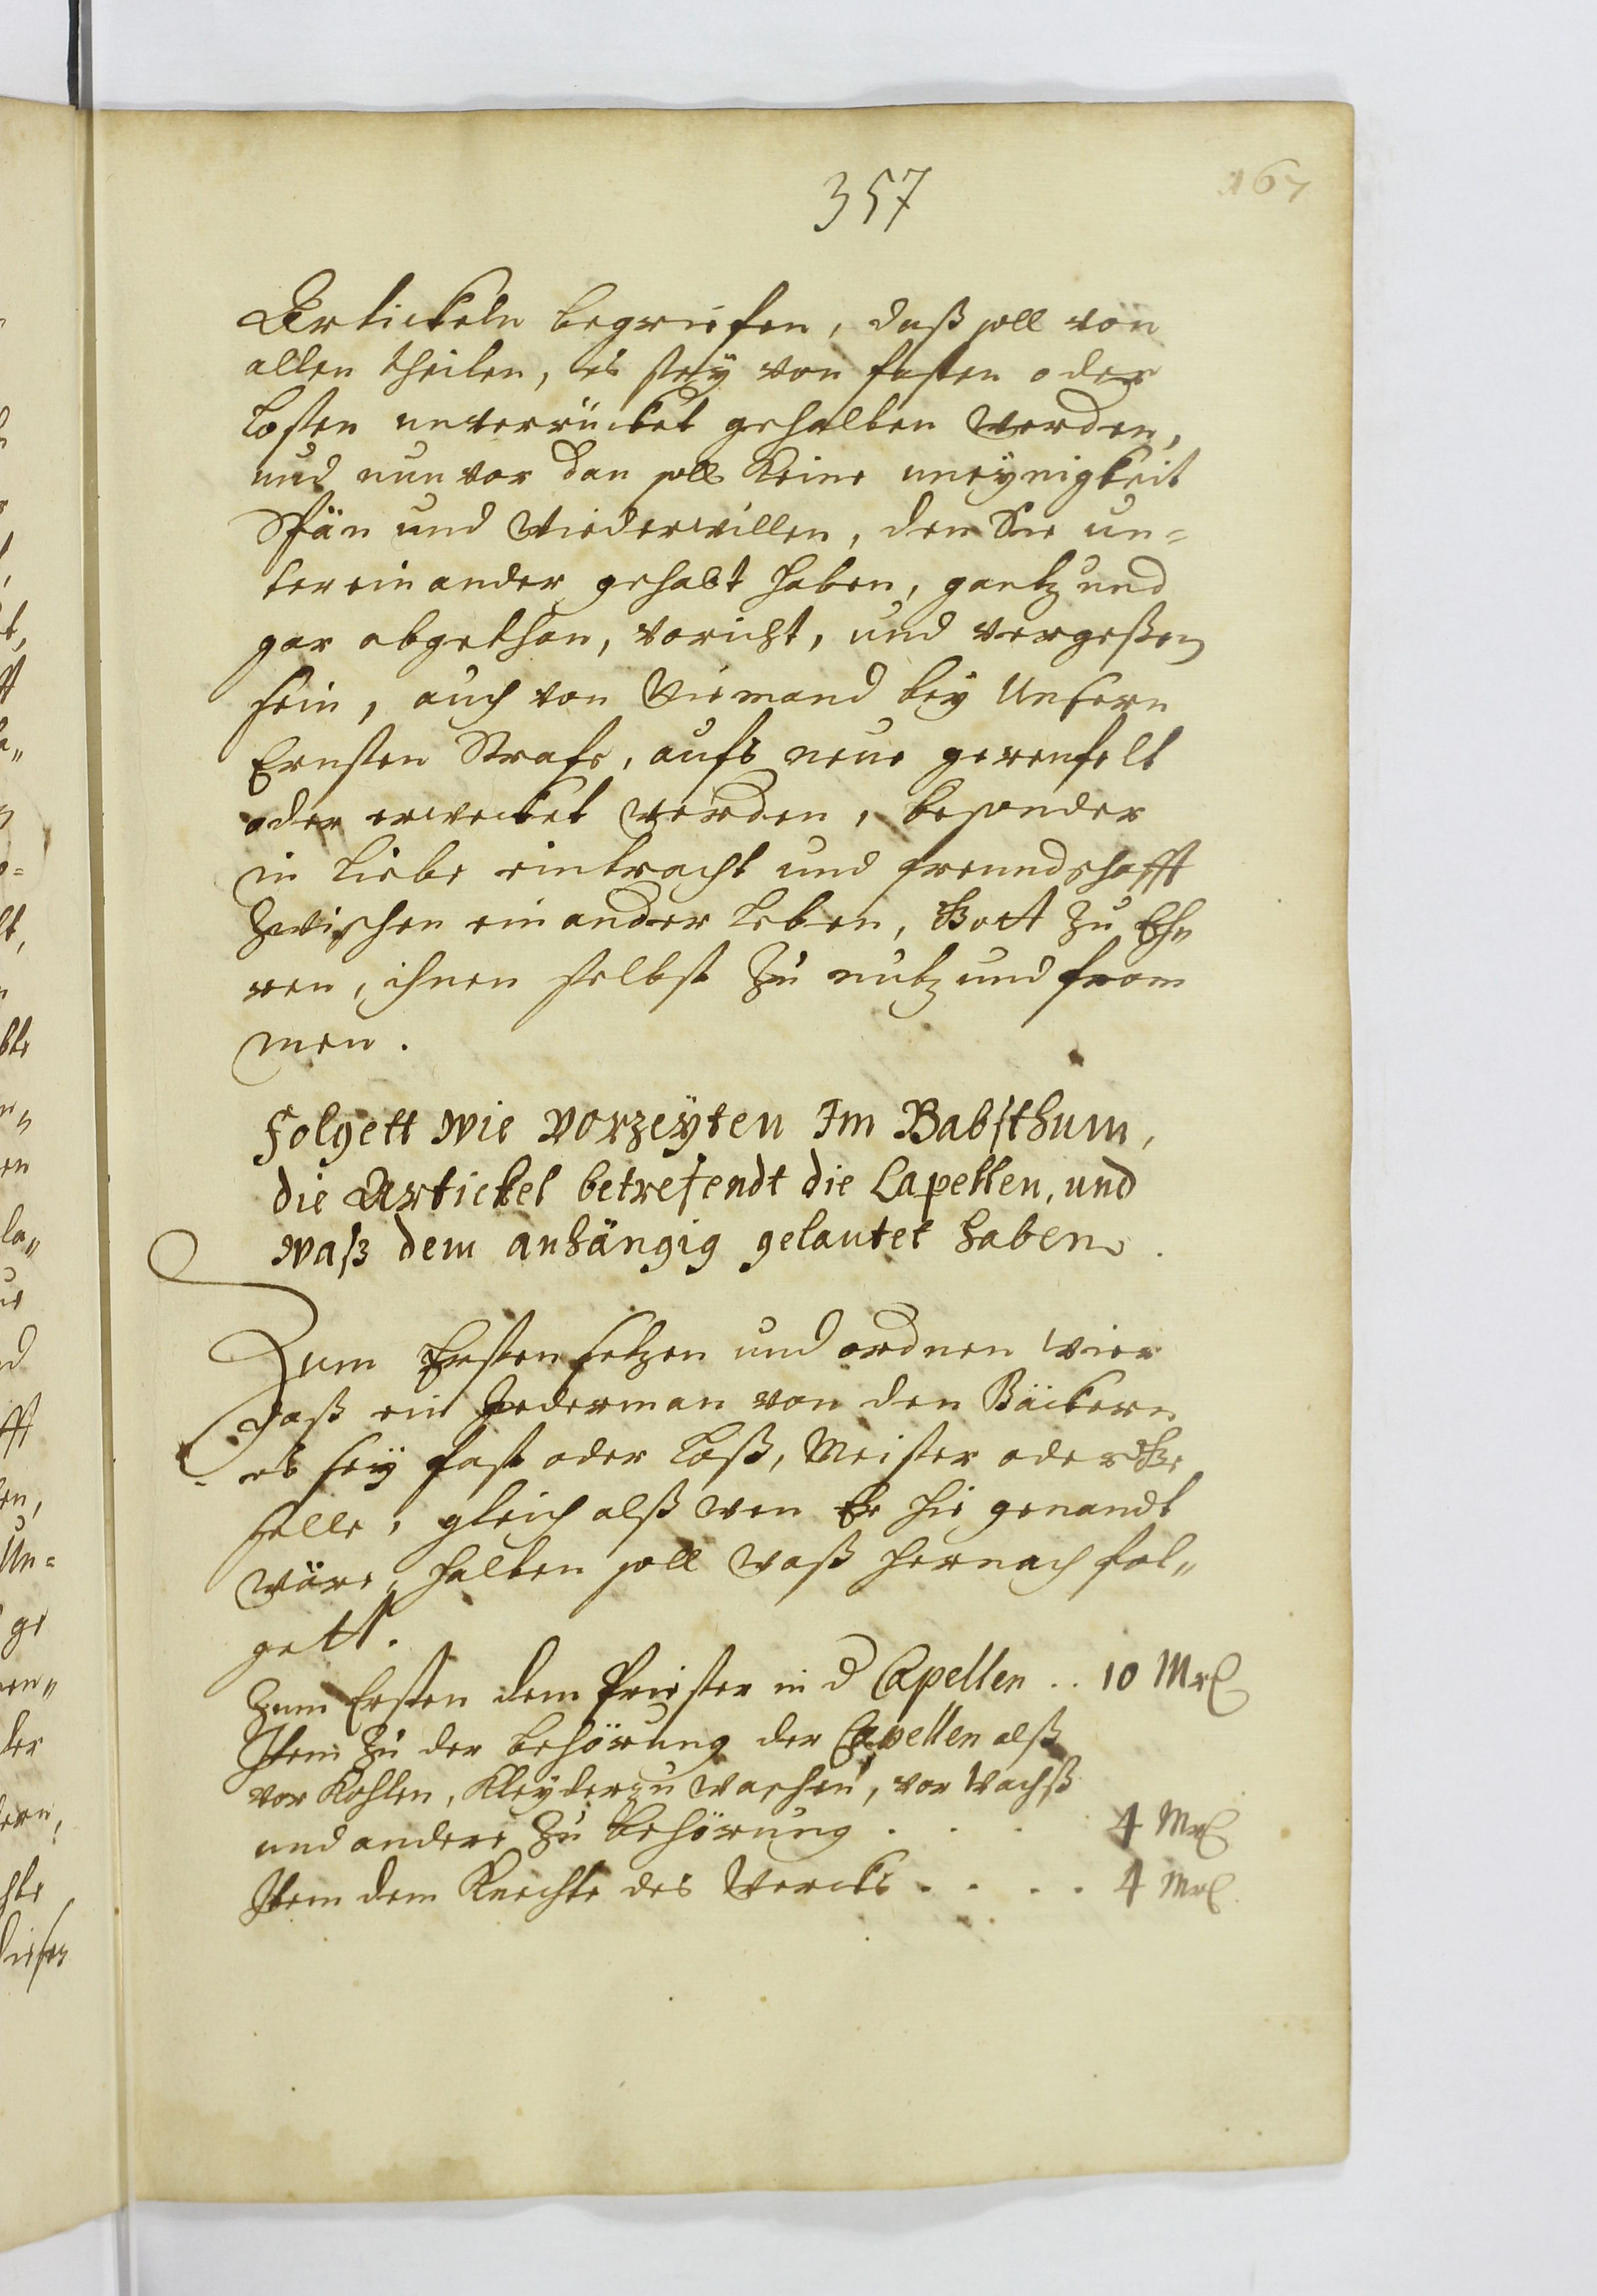 357
167
Artickeln begriefen, daß soll von
allen theilen, es sey von fasten oder
Losten unverrücket gehalten werden,
und nun vor dan soll keine uneynigkeit
Spän und Wiederwillen, den Sie un=
tereinander gehabt haben, gantz und
gar abgethan, voricht, und vergeßen
sein, auch von Niemand bey Unsern
Ernsten Strafe, aufs neue gereufelt
oder erwecket werden, besonder
in Liebe eintracht und freundschafft
Zwischen einander leben, Gott zu Eh„
ren, ihnen selbst zu nutz und from
men.
Folgett wie vorzeyten Im Babsthum,
die Artickel betrefendt die Capellen, und
waß dem anhängig gelautet haben.
Zum Ersten setzen und ordnen wier
daß ein Jederman von den Bäckern
es sey fast oder loß, Meister oder Ge
selle, gleich alß wen Er hie genandt
wäre, halten soll waß hernach fol„
gett.
Zum Ersten dem Priester in d Capellen .. 10 Mrl
Item zu der behörung der Capellen alß
vor Kohlen, Kleyder zu waschen, vor Wachß
und andere zu behörung . . . 4 Mrl
Item dem Knechte des Wercks . . . . 4 Mrl.